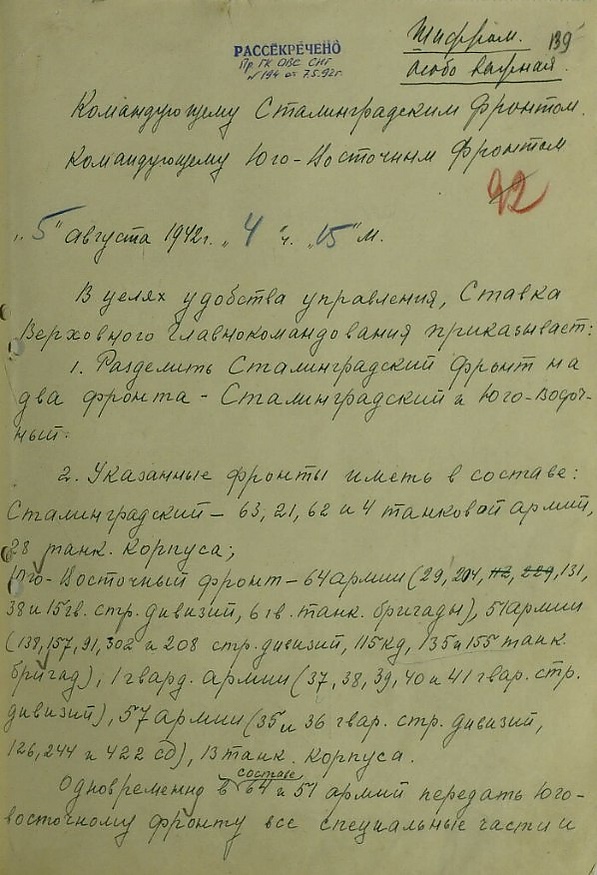 Шифром. 139
Особо важная.
РАССЕКРЕЧЕНО
Пр. ГК ОВС СНГ
№ 194 от 7.5.92г.
Командующему Сталинградским фронтом.
Командующему Юго-Восточным фронтом
92
„5" августа 1942г. „4" ч. „15" м.
В целях удобства управления, Ставка
Верховного Главнокомандования приказывает:
1. Разделить Сталинградский фронт на
два фронта - Сталинградский и Юго-Водоч-
ный.
2. Указанные фронты иметь в составе:
Сталинградский - 63, 21, 62 и 4 танковой армий,
28 танк. корпуса;
Юго-Восточный фронт - 64 армии (29, 204, 112, 229, 131,
38 и 15 гв. стр. дивизий, 6 гв. танк. бригады), 51 армии
(138, 157, 91, 302 и 208 стр. дивизий, 115 кд, 135 и 155 танк.
бригад), 1 гвард. армии (37, 38, 39, 40 и 41 гвар. стр.
дивизий), 57 армии (35 и 36 гвар. стр. дивизий,
126, 244 и 422 сд), 13 танк. корпуса.
Одновременно в составе 64 и 51 армий передать Юго-
восточному фронту все специальные части и